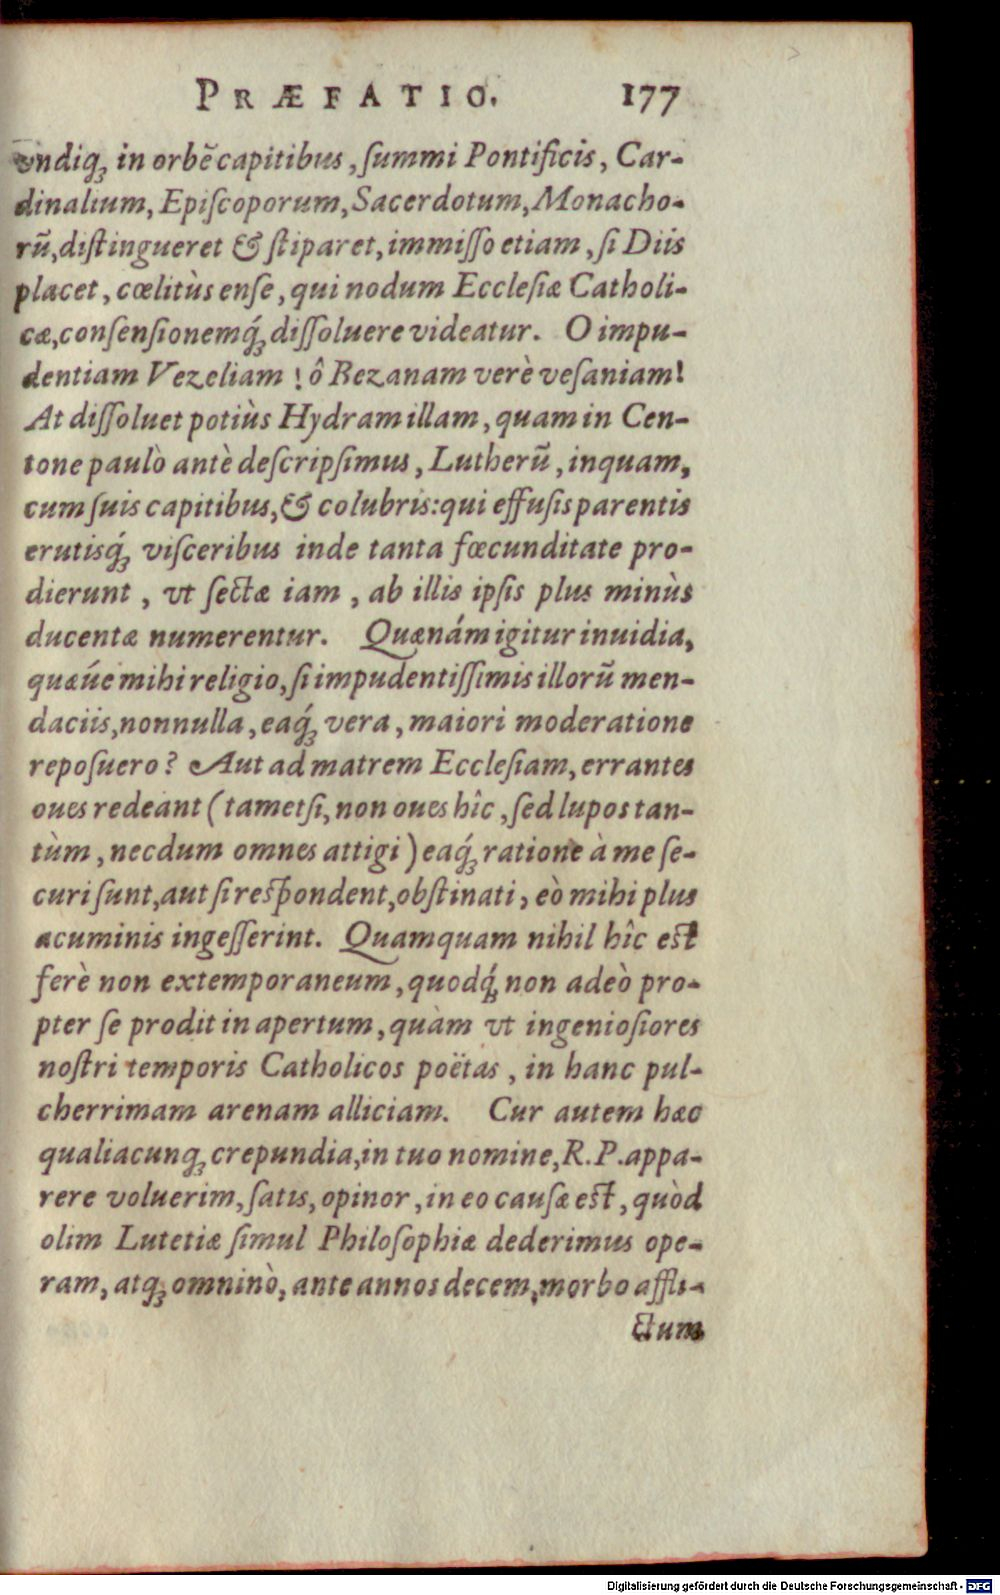 PRÆFATIO. 177
vndiq́ꝫ in orbē capitibus, ſummi Pontificis, Car-
dinalium, Epiſcoporum, Sacerdotum, Monacho-
rū, diſtingueret & ſtiparet, immiſſo etiam, ſi Diis
placet, cœlitùs enſe, qui nodum Eccleſiæ Catholi-
cæ, conſenſionemq́ꝫ diſſoluere videatur. O impu-
dentiam Vezeliam! ô Bezanam verè veſaniam!
At diſſoluet potiùs Hydram illam, quam in Cen-
tone paulò antè deſcripſimus, Lutherū, inquam,
cum ſuis capitibus, & colubris: qui effuſis parentis
erutisq́ꝫ viſceribus inde tanta fœcunditate pro-
dierunt, vt ſectæ iam, ab illis ipſis plus minùs
ducentæ numerentur. Quænám igitur inuidia,
quæúe mihi religio, ſi impudentiſſimis illorū men-
daciis, nonnulla, eaq́ꝫ vera, maiori moderatione
repoſuero? Aut ad matrem Eccleſiam, errantes
oues redeant (tametſi, non oues hîc, ſed lupos tan-
tùm, necdum omnes attigi) eaq́ꝫ ratione à me ſe-
curi ſunt, aut ſi reſpondent, obſtinati, eò mihi plus
acuminis ingeſſerint. Quamquam nihil hîc eſt
ferè non extemporaneum, quodq́ꝫ non adeò pro-
pter ſe prodit in apertum, quàm vt ingenioſiores
noſtri temporis Catholicos poëtas, in hanc pul-
cherrimam arenam alliciam. Cur autem hæc
qualiacunqꝫ crepundia, in tuo nomine, R. P. appa-
rere voluerim, ſatis, opinor, in eo cauſæ eſt, quòd
olim Lutetiæ ſimul Philoſophiæ dederimus ope-
ram, atqꝫ omninò, ante annos decem, morbo affli-
ctum
Digitalisierung gefördert durch die Deutsche Forschungsgemeinschaft - DFG